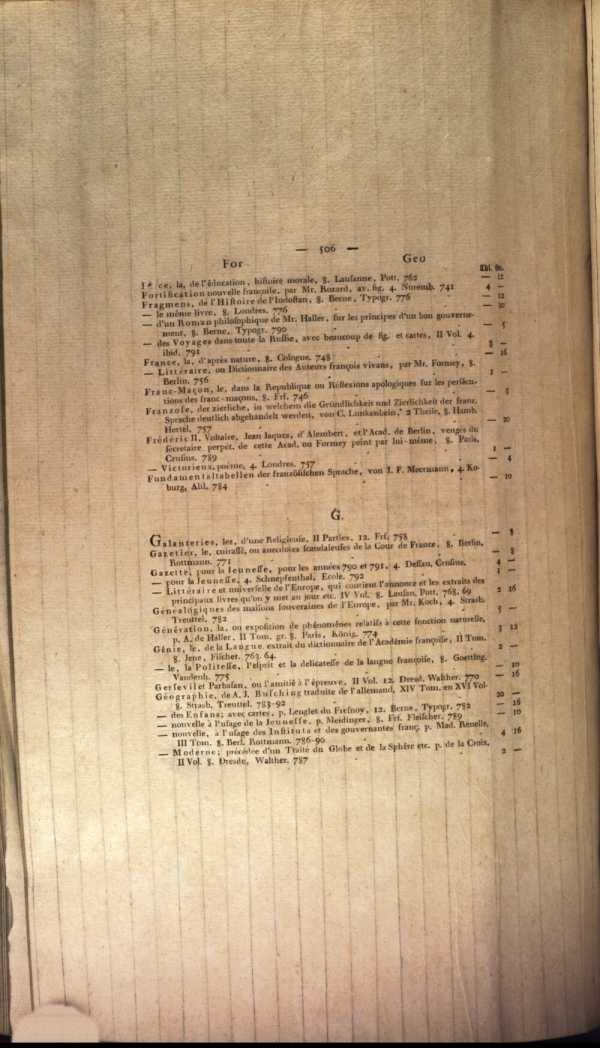 — 506 —
For Geo
Rthl. Gr.
Force, la, de l'éducation, histoire morale, 8. Lausanne, Pott. 762 — 12
Fortification nouvelle françoise, par Mr. Rozard, av. fig. 4. Nuremb. 741 4 —
Fragmens, de l'Histoire de l'Indostan, 8. Berne, Typogr. 776 — 12
— le même livre, 8. Londres. 776 — 10
— d'un Roman philosophique de Mr. Haller, sur les principes d'un bon gouverne-
ment, 8. Berne, Typogr. 790 — 5
— des Voyages dans toute la Russie, avec beaucoup de fig. et cartes, II Vol. 4.
ibid. 791 8 —
France, la, d'après nature, 8. Cologne. 748 — 16
— Littéraire, ou Dictionnaire des Auteurs françois vivans, par Mr. Formey, 8.
Berlin. 756 1 —
Franc-Maçon, le, dans la Republique ou Réflexions apologiques sur les persécu-
tions des franc-maçons, 8. Frf. 746 — 8
Franzose, der zierliche, in welchem die Gründlichkeit und Zierlichkeit der franz.
Sprache deutlich abgehandelt werden, von C. Luttkenbein, 2 Theile, 8. Hamb.
Hertel. 757 — 20
Frédéric II, Voltaire, Jean Jaques, d'Alembert, et l'Acad. de Berlin, vengés du
secretaire perpét. de cette Acad. ou Formey peint par lui-même, 8. Paris,
Crusius. 789 1 —
— Victorieux, poème, 4. Londres. 757 — 4
Fundamentaltabellen der französischen Sprache, von J. F. Meermann, 4. Ko-
burg, Ahl. 784 — 10
G.
Galanteries, les, d'une Religieuse, II Parties, 12. Frf. 758 — 8
Gazetier, le, cuirassé, ou anecdotes scandaleuses de la Cour de France, 8. Berlin,
Rottmann. 771 — 8
Gazette, pour la Jeunesse, pour les années 790 et 791, 4. Dessau, Crusius. 4 —
— pour la Jeunesse, 4. Schnepfenthal, Ecole. 792 1 —
— Littéraire et universelle de l'Europe, qui contient l'annonce et les extraits des
principaux livres qu'on y met au jour etc. IV Vol. 8. Lausan. Pott. 768, 69 2 16
Généalogiques des maisons souveraines de l'Europe, par Mr. Koch, 4. Strasb.
Treuttel. 782 5 —
Génération, la, ou exposition de phénomènes relatifs à cette fonction naturelle,
p. A. de Haller, II Tom. gr. 8. Paris, König. 774 3 12
Génie, le, de la Langue extrait du dictionnaire de l'Académie françoise, II Tom.
8. Jene, Fischer. 763. 64. 2 —
— le, la Politesse, l'esprit et la délicatesse de la langue françoise, 8. Goetting.
Vandenh. 775 — 10
Gerseuil et Parbasan, ou l'amitié à l'épreuve, II Vol. 12. Dresd. Walther. 770 — 16
Géographie, de A. J. Busching traduite de l'allemand, XIV Tom. en XVI Vol.
8. Strasb. Treuttel. 783-92 20 —
— des Enfans; avec cartes, p. Lenglet du Fresnoy, 12. Berne, Typogr. 782 — 16
— nouvelle à l'usage de la Jeunesse, p. Meidinger, 8. Frf. Fleischer. 789 — 10
— nouvelle, à l'usage des Instituts et des gouvernantes franç. p. Mad. Renelle,
III Tom. 8. Berl. Rottmann. 786-90 4 16
— Moderne; précédée d'un Traité du Globe et de la Sphère etc. p. de la Croix,
II Vol. 8. Dresde, Walther. 787 2 —